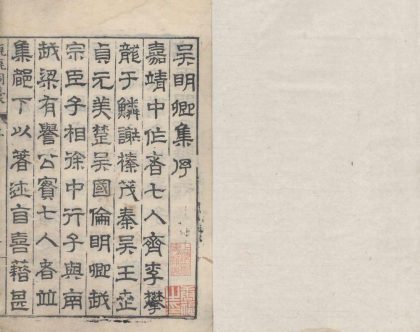 吳明卿集序
嘉靖中作者七人齊李攀
龍于鱗謝榛茂秦吳王世
貞元美楚吳國倫明卿越
宗臣子相徐中行子與南
越梁有譽公實七人者並
集下以著述自喜藉甚